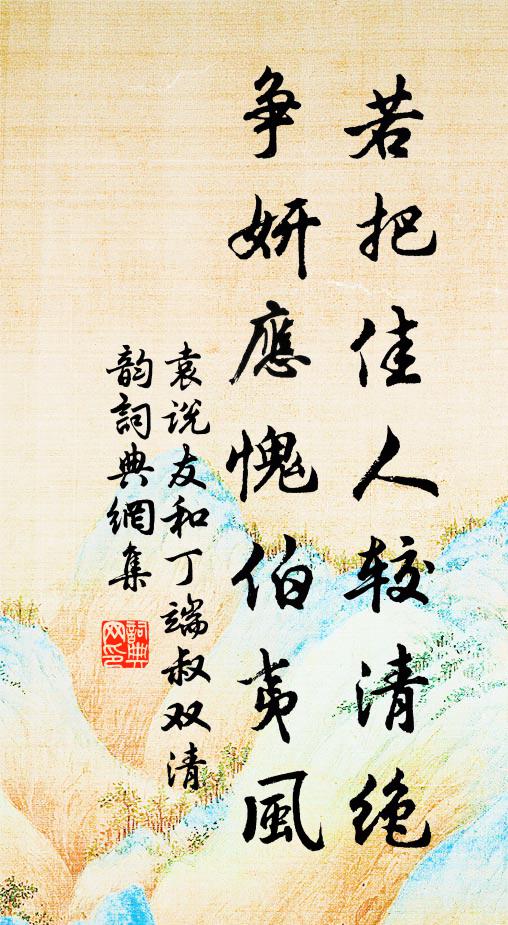 若把佳人较清绝
争妍應愧伯夷風
袁说友和丁端叔双清
韵詞典網集
詞典